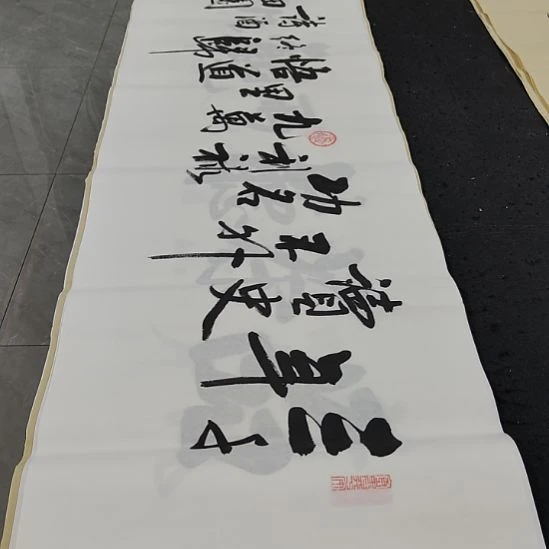 三千年
讀史不外
功名利祿
九萬里
悟道終歸
詩酒田園